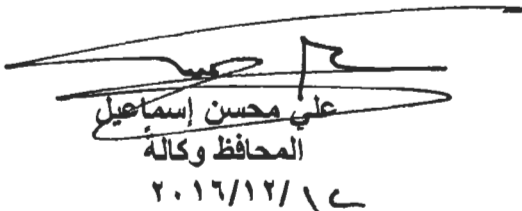 علي محسن إسماعيل
المحافظ وكالةً
٢٠١٦/١٢/١٤